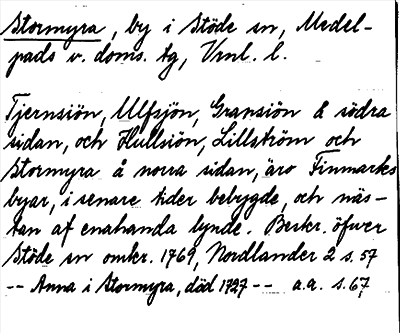 Stormyra, by i Stöde sn, Medel-
pads v. doms. tg, Vrnl. l.
Tjernsiön, Ulfsjön, Gransiön å södra
sidan, och Hullsiön, Lillström och
Stormyra å norra sidan, äro Finmarkes
byar, i senare tider bebygde, och näs-
tan af enahanda lynde. Beskr. öfwer
Stöde sn omkr. 1769, Nordlander 2 s. 57
-- Anna i Stormyra, död 1727 -- a.a. s. 67